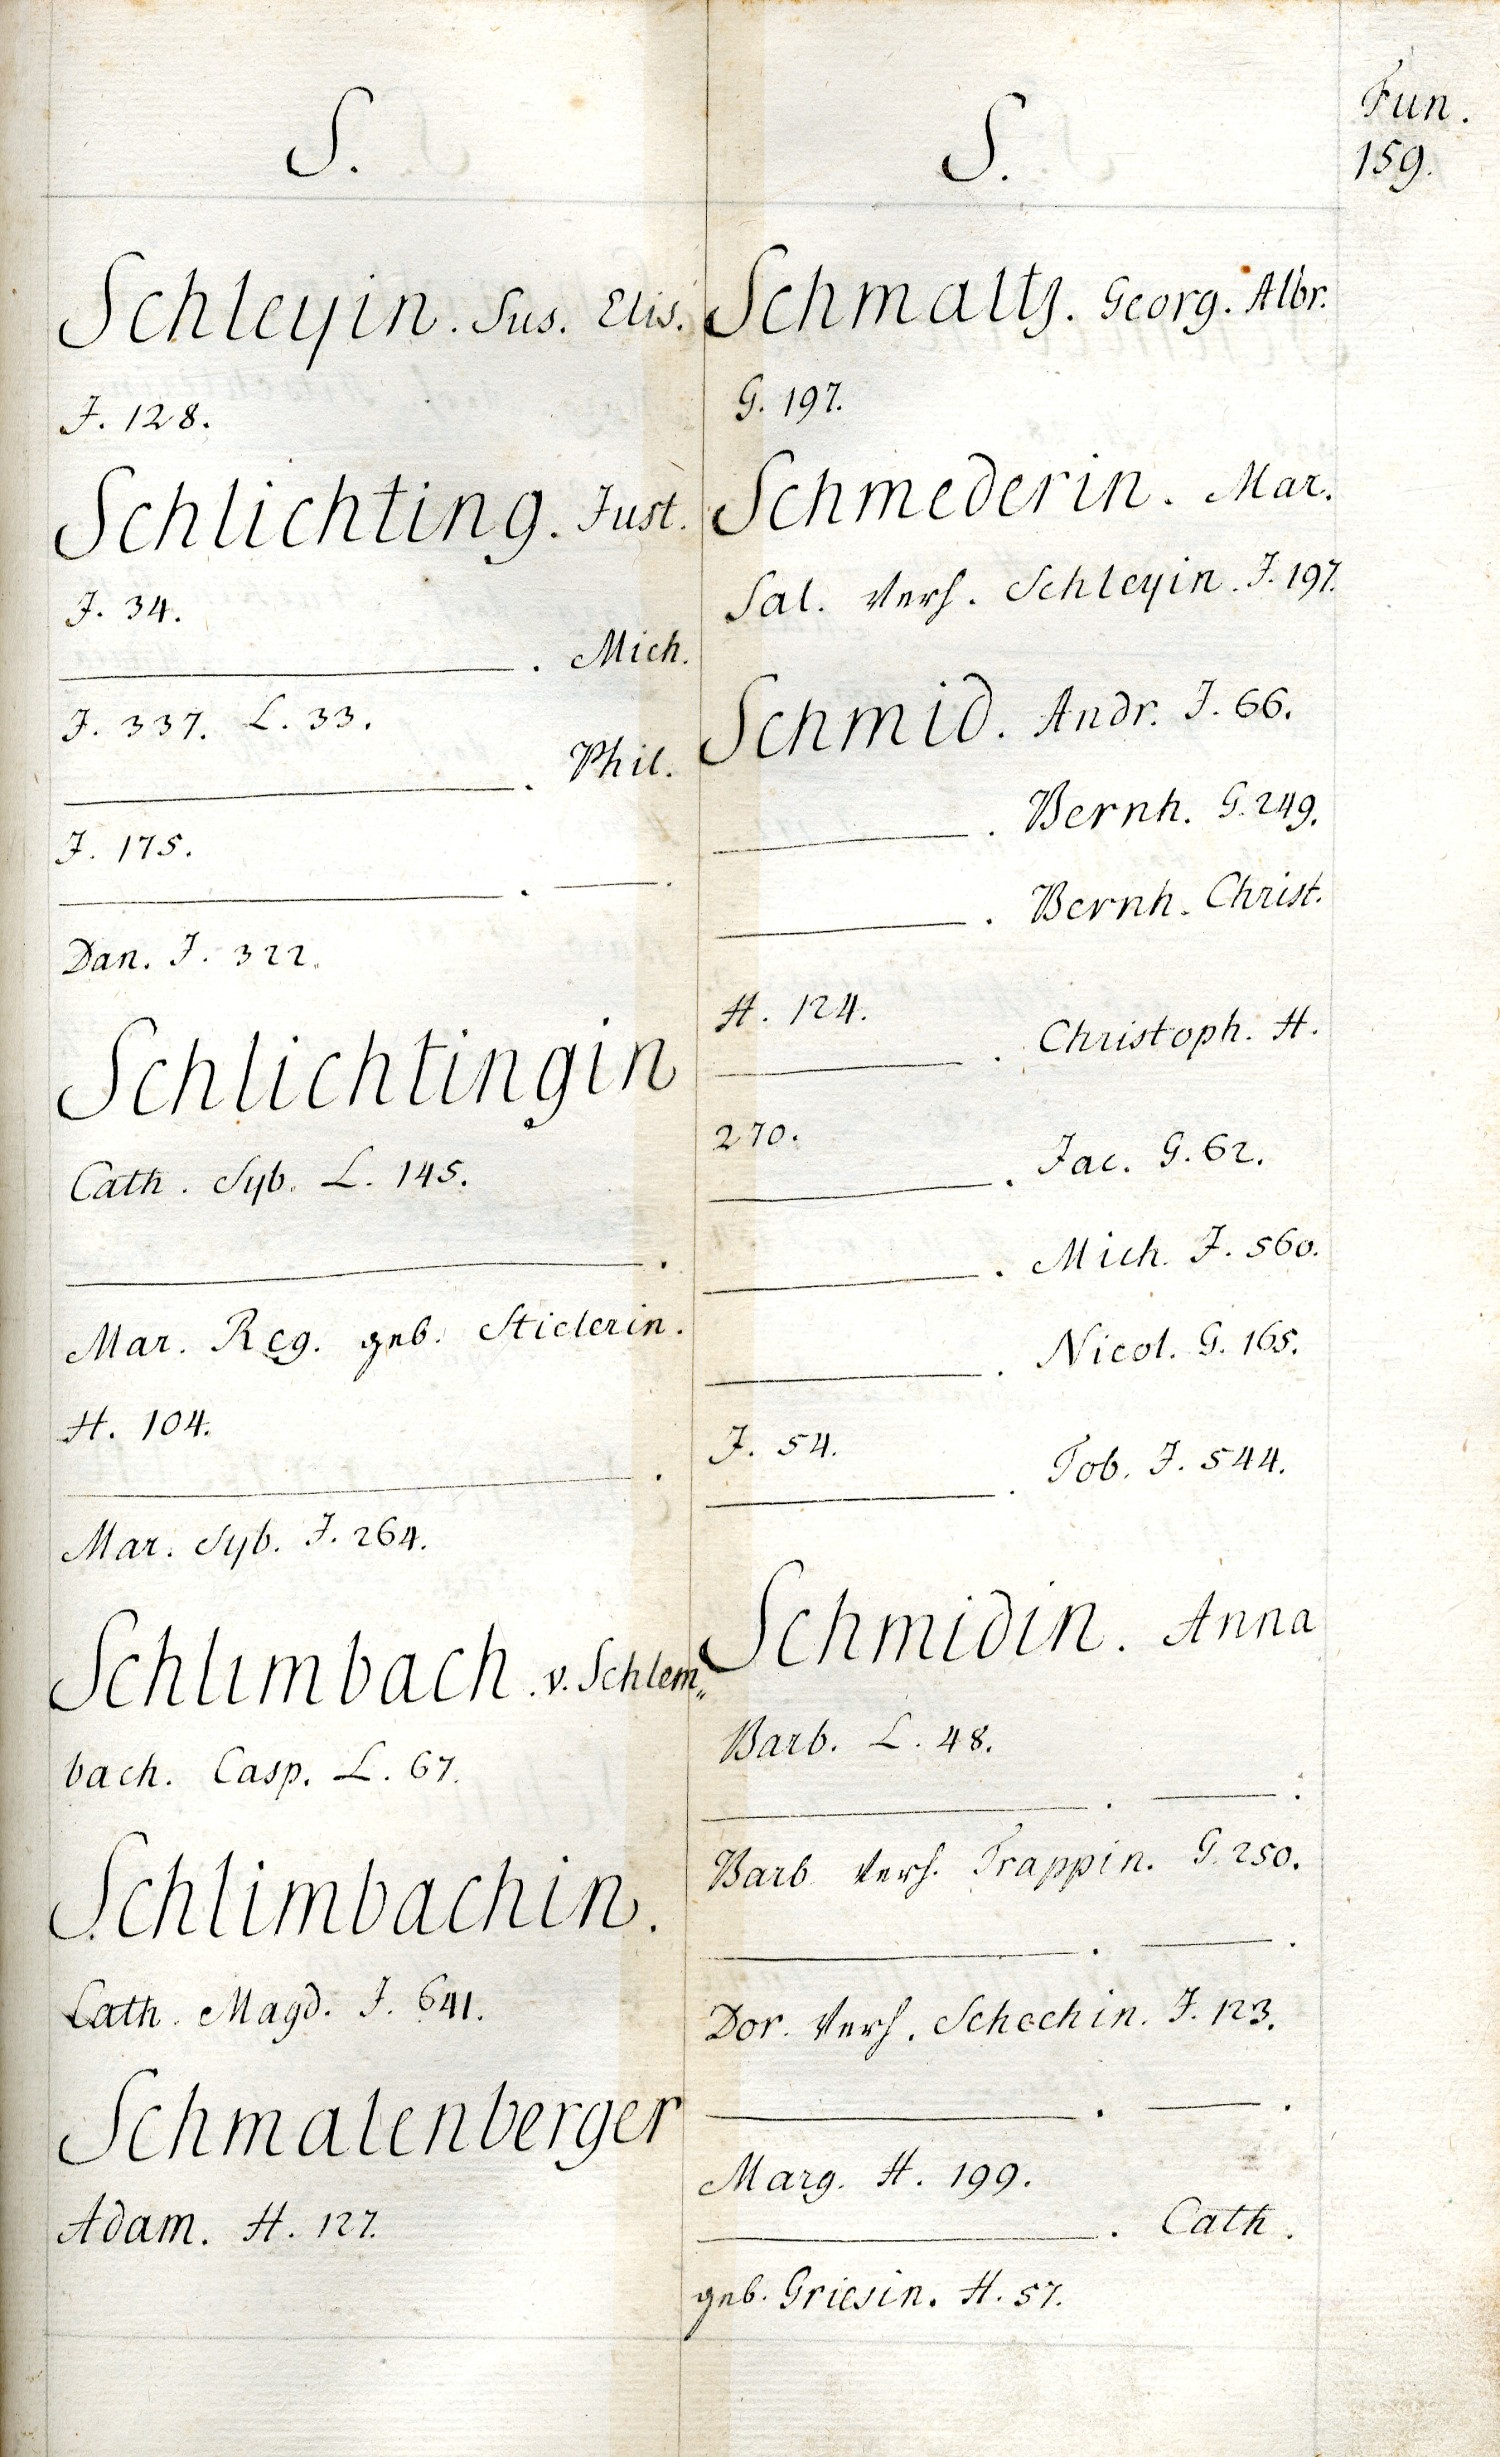 S.
Schleyin. Sus. Elis.
J. 128.
Schlichting. Just.
J. 34.
———. Mich.
J. 337. L. 33.
———. Phil.
J. 175.
———. ———.
Dan. J. 322.
Schlichtingin
Cath. Syb. L. 145.
———.
Mar. Reg. geb. Stielerin.
H. 104.
———.
Mar. Syb. J. 264.
Schlimbach. v. Schlem„
bach. Casp. L. 67.
Schlimbachin.
Cath. Magd. J. 641.
Schmalenberger
Adam. H. 127.
S.
Schmaltz. Georg. Albr.
G. 197.
Schmederin. Mar.
Sal. Verh. Schleyin. J. 197.
Schmid. Andr. J. 66.
———. Bernh. G. 249.
———. Bernh. Christ.
H. 124.
———. Christoph. H.
270.
———. Jac. G. 62.
———. Mich. J. 560.
———. Nicol. G. 165.
J. 54.
———. Tob. J. 544.
Schmidin. Anna
Barb. L. 48.
———. ———.
Barb. Verh. Trappin. G. 250.
———. ———.
Dor. Verh. Schechin. J. 123.
———. ———.
Marg. H. 199.
———. Cath.
geb. Griesin. H. 57.
Fun.
159.